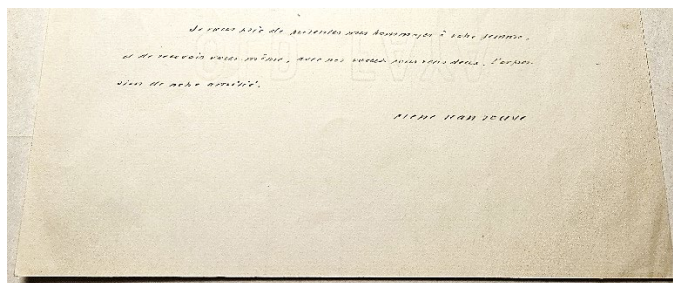 Je vous prie de présenter mes hommages à votre femme,
et de recevoir vous même, avec nos voeux pour vous deux, l'expres-
sion de notre amitié.
Pierre Jean Jouve